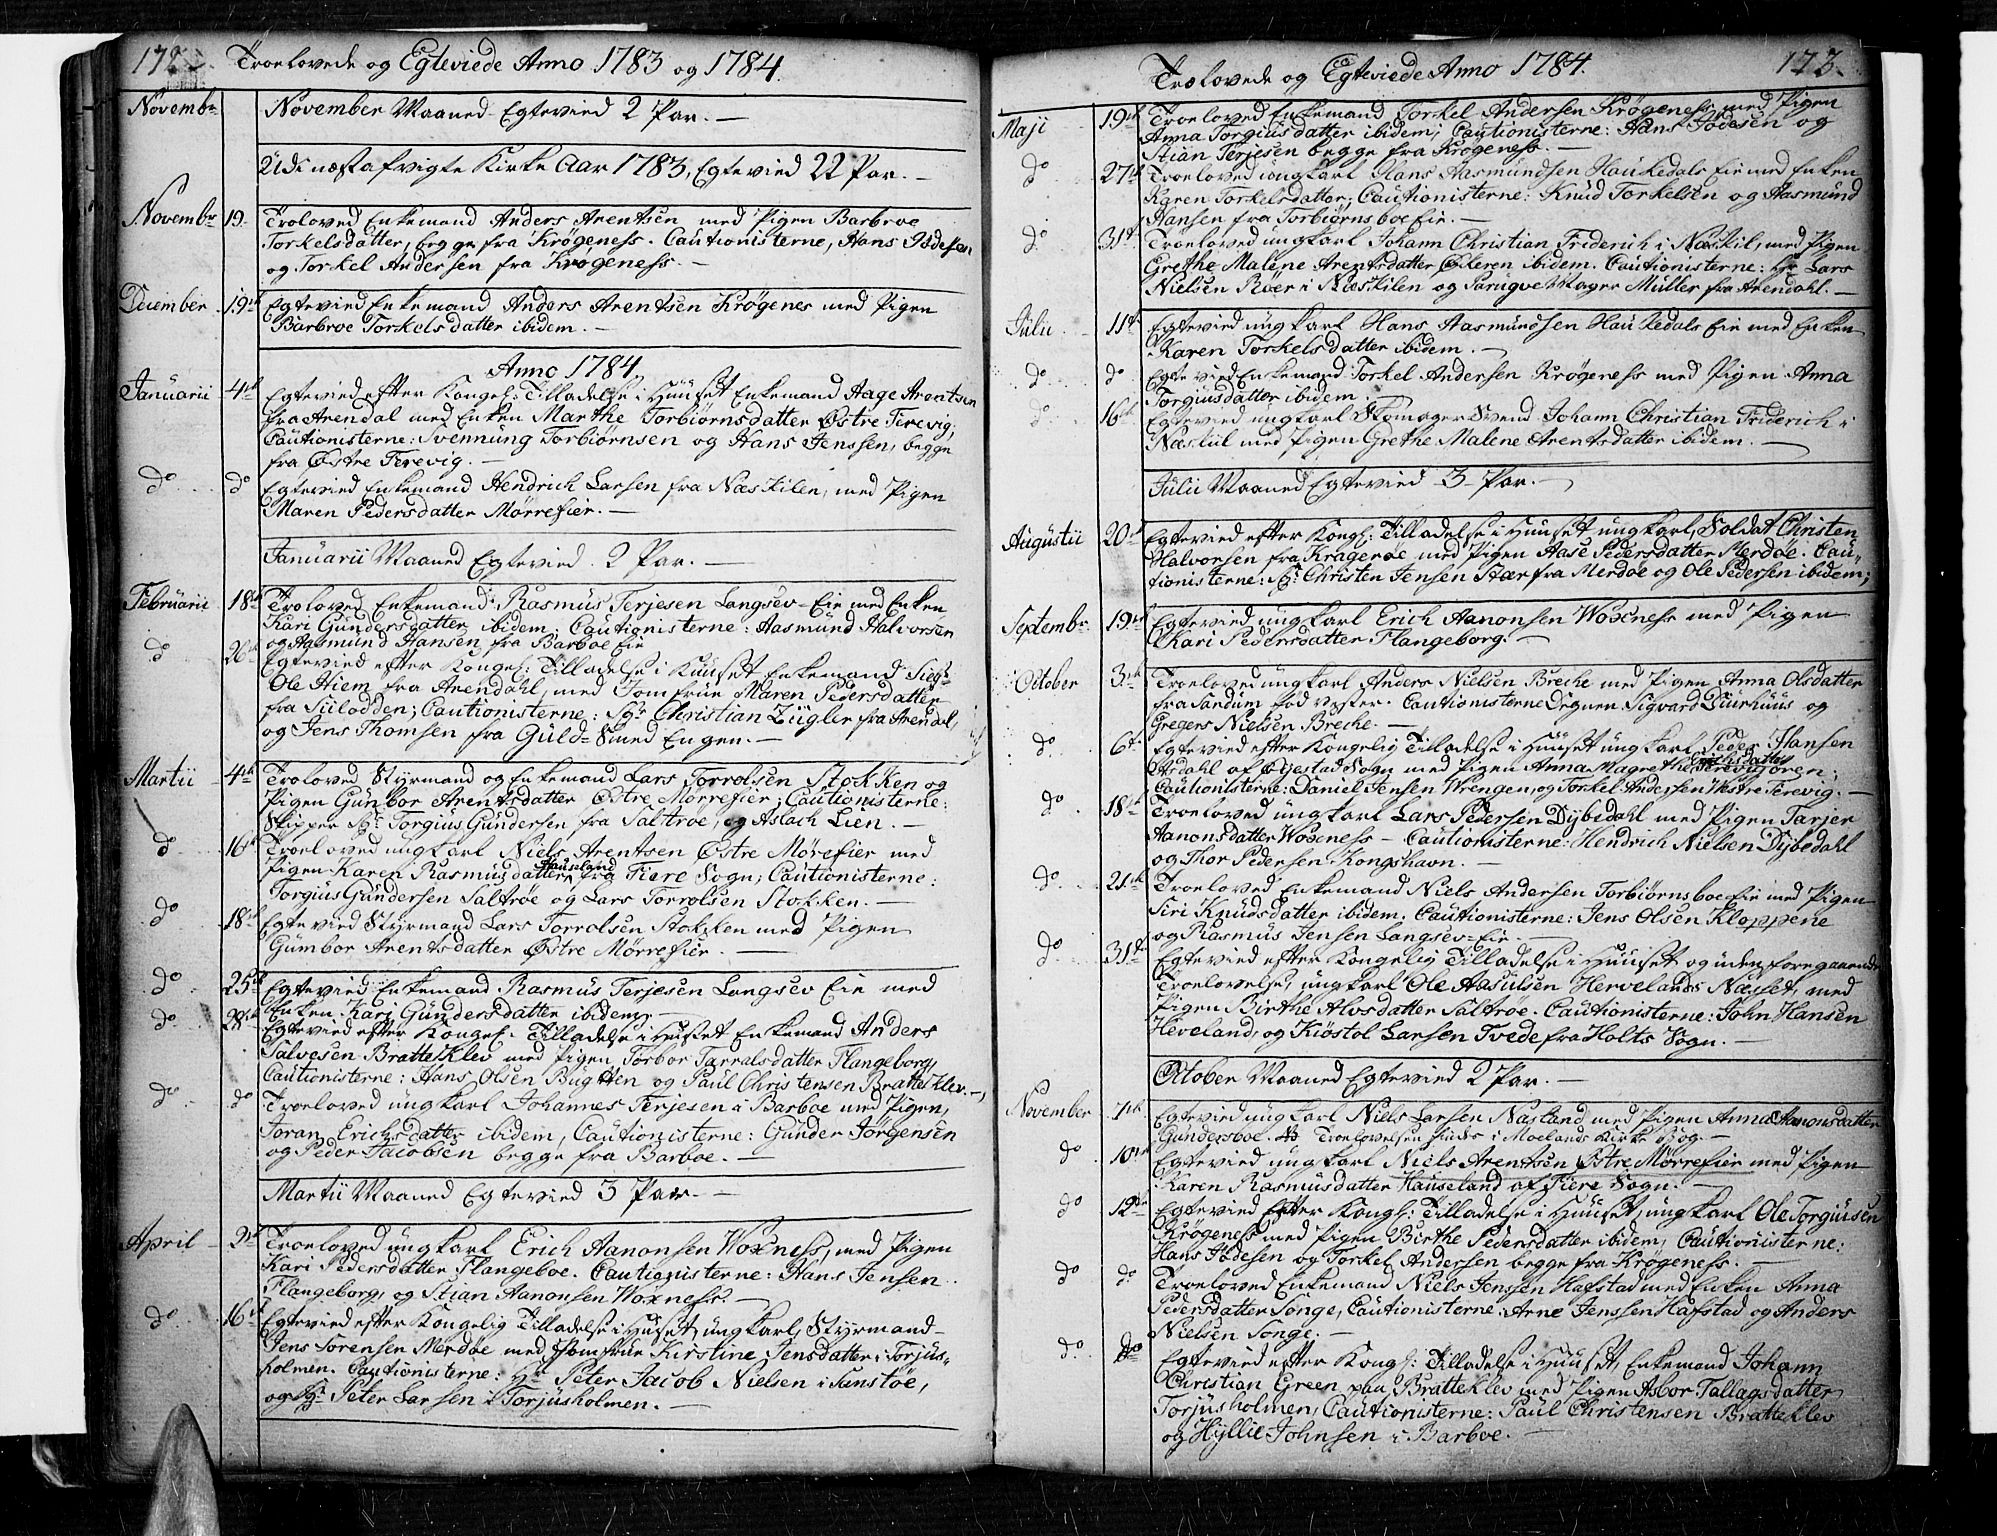 172.
Troelovede og Egteviede Anno 1783 og 1784.
Novembr.
November Maaned Egtevied 2 Par. —
Udi næst afvigte Kirke Aar 1783, Egtevied 22 Par. —
Novembr 19. Troloved Enkemand Anders Arentsen med Pigen Barbroe
Torkelsdatter, begge fra Krøgeness. Cautionisterne, Hans Jødesen
og Torkel Andersen fra Krogeness. —
December 19de Egtevied Enkemand Anders Arentsen Krøgenes med Pigen
Barbroe Torkelsdatter ibidem. —
Anno 1784.
Januarii 4de Egtevied efter Kongel: Tilladelse i Huuset Enkemand Aage Arentsen
fra Arendal med Enken Marthe Torbiørnsdatter Østre Terevig,
Cautionisterne: Svennung Torbiørnsen og Hans Jenssen, begge
fra Østre Terevig. —
do do Egtevied Enkemand Hendrich Larsen fra Næskilen, med Pigen
Maren Pedersdatter Mørrefier. —
Januarii Maaned Egtevied 2 Par. —
Februarii 18de Troloved Enkemand Rasmus Terjesen Langsev-Eie med Enken
Kari Gundersdatter ibidem. Cautionisterne: Aasmund Halvorsen
og Aasmund Hansen fra Barboe Eie
do 26de Egtevied efter Kongel: Tilladelse i Huuset Enkemand Sigr
Ole Hiem fra Arendahl, med Jomfrue Maren Pedersdatter
fra Siilodden; Cautionisterne: Sgr Christian Zügler fra Arendal,
og Jens Thomsen fra Guld-Smed Engen. —
Martii 4de Troloved Styrmand og Enkemand Lars Torrolsen Stokken og
Pigen Gunbor Arentsdatter Østre Mørrefier; Cautionisterne:
Skipper Sr Torgius Gundersen fra Saltrøe, og Aslach Lien. —
do 16de Troeloved ungkarl Niels Arentsen Østre Mørefier med
Pigen Karen Rasmusdatter Hauseland fra Fiere Sogn; Cautionisterne:
Torgius Gundersen Saltrøe og Lars Torrolsen Stokken. —
do 18de Egtevied Styrmand Lars Torrolsen Stokken med Pigen
Gumbor Arentsdatter Østre Mørrefier. —
do 25de Egtevied Enkemand Rasmus Terjesen Langsev Eie med
Enken Kari Gundersdatter ibidem. —
do 28de Egtevied efter Kongel: Tilladelse i Huset Enkemand Anders
Salvesen Bratteklev med Pigen Torbor Tarralsdatter Flangeborg,
Cautionisterne: Hans Olsen Bugtten og Paul Christensen Bratteklev. —
do do Troeloved ungkarl Johannes Terjesen i Barboe med Pigen,
Joran Erichsdatter ibidem, Cautionisterne: Gunder Jørgensen
og Peder Jacobsen begge fra Barboe. —
Martii Maaned Egtevied 3 Par. —
April 2de Troeloved ungkarl Erich Aanonsen Woxness, med Pigen
Kari Pedersdatter Flangeboe. Cautionisterne: Hans Jensen
Flangeborg, og Stian Aanonsen Woxness. —
do 16de Egtevied efter Kongelig Tilladelse i Huset, ungkarl, Styrmand
Jens Sørensen Merdøe med Jomfrue Kirstine Jensdatter i Torjus-
holmen. Cautionisterne: Hr Peter Jacob Nielsen i Sandstøe,
og Sgr Peter Larsen i Torjusholmen. —
Trolovede og Egteviede Anno 1784.
173.
Maji 19de Troeloved Enkemand Torkel Andersen Krøgeness med Pigen
Anna Torgiusdatter ibidem; Cautionisterne: Hans Jødesen og
Stian Terjesen begge fra Krøgeness. —
do 27de Troeloved ungkarl Hans Aasmundsen Haukedals Eie med Enken
Karen Torkelsdatter; Cautionisterne: Knud Torkelsen og Aasmund
Hansen fra Torbiørnsboe Eie. —
do 31te Troeloved ungkarl Johann Christian Friderich i Næskil, med Pigen
Grethe Malene Arentsdatter Økeren ibidem. Cautionisterne: Hr Lars
Nielsen Røer i Næskilen og Parugve Mager Müller fra Arendahl. —
Julii 11te Egtevied ungkarl Hans Aasmundsen Haukedals Eie med Enken
Karen Torkelsdatter ibidem. —
do do Egtevied Enkemand Torkel Andersen Krøgeness med Pigen Anna
Torgiusdatter ibidem. —
do 16de Egtevied ungkarl Skomager Svend Johann Christian Friderich i
Næskiil med Pigen Grethe Malene Arentsdatter ibidem. —
Julii Maaned Egtevied 3 Par. —
Augustii 20de Egtevied efter Kongl: Tilladelse i Huuset ungkarl, Soldat Christen
Halvorsen fra Kragerøe med Pigen Aase Pedersdatter Merdøe. Cau-
tionisterne: Sr Christen Jensen Stær fra Merdøe og Ole Pedersen ibidem;
Septembr. 19de Egtevied ungkarl Erich Aanonsen Woxness med Pigen
Kari Pedersdatter Flangeborg. —
October 3de Troeloved ungkarl Anders Nielsen Breche med Pigen Anna Olsdatter
fra Sandum. Cautionisterne Degnen Sigvard Duurhuus og
Gregers Nielsen Breche. —
do 6te Egtevied efter Kongelig Tilladelse i Huuset ungkarl Peder Hansen
Asdahl af Øjestad Sogn med Pigen Anna Magrethe Erichsdatter
Cautionisterne: Daniel Jensen Wrengen, og Torkel Andersen Westre Terevig. —
do 18de Troeloved ungkarl Lars Pedersen Dybedahl med Pigen Tarjer
Aanonsdatter Woxeness — Cautionisterne: Hendrich Nielsen Dybedahl
og Thor Pedersen Kongshavn. —
do 21de Troeloved Enkemand Niels Andersen Torbiørnsboe Eie med Pigen
Siri Knudsdatter ibidem. Cautionisterne: Jens Olsen Kloppene
og Rasmus Jensen Langsev-Eie. —
do 31te Egtevied efter Kongelig Tilladelse i Huuset og uden foregaaende
Troelovelse, ungkarl Ole Aasulsen Hervelands Næsset, med
Pigen Birthe Alvsdatter Saltrøe. Cautionisterne: John Hansen
Heveland, og Kiøstol Larsen Tvede fra Holts Sogn. —
October Maaned Egtevied 2 Par. —
November 7de Egtevied ungkarl Niels Larsen Næsland med Pigen Anna Aanonsdatter
Gundersboe. NB Troelovelsen findes i Moelands Kirke Bog. —
do 10de Egtevied ungkarl Niels Arentsen Østre Mørrefier med Pigen
Karen Rasmusdatter Hauseland af Fiere Sogn. —
do 12te Egtevied Efter Kongl: Tilladelse i Huuset, ungkarl Ole Torgiusen
Krøgeness med Pigen Birthe Pedersdatter ibidem, Cautionisterne:
Hans Jødesen og Torkel Andersen begge fra Krøgeness. —
do do Troeloved Enkemand Niels Jenssen Hafstad med Enken Anna
Pedersdatter Songe, Cautionisterne: Arne Jenssen Hafstad og Anders
Nielsen Songe. —
do do Egtevied efter Kongl: Tilladelse i Huuset, Enkemand Johann
Christian Green paa Bratteklev med Pigen Asbor Tallagsdatter
Torjusholmen, Cautionisterne: Paul Christensen Bratteklev
og Hyllie Johnsen i Barboe. —